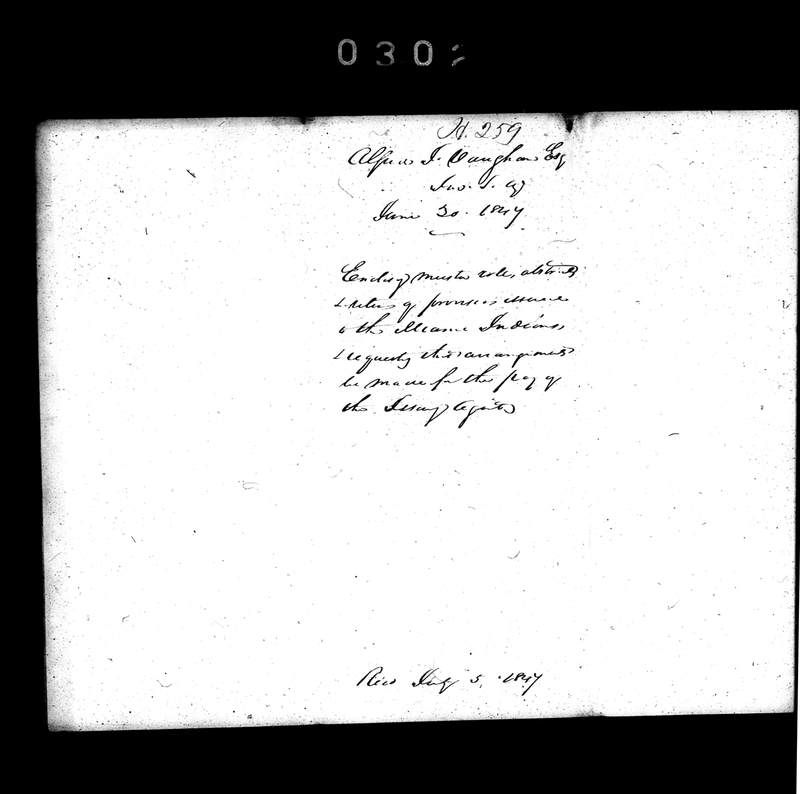 030
H. 259
Alfred J. Vaughan Esq
Ind. S. Ag
June 30. 1847.
Enclosg muster rolls, abstracts
& returns of provisions issued
to the Miami Indians,
& requestg that arrangements
be made for the pay of
the Issuing Agents
Recd July 5, 1847